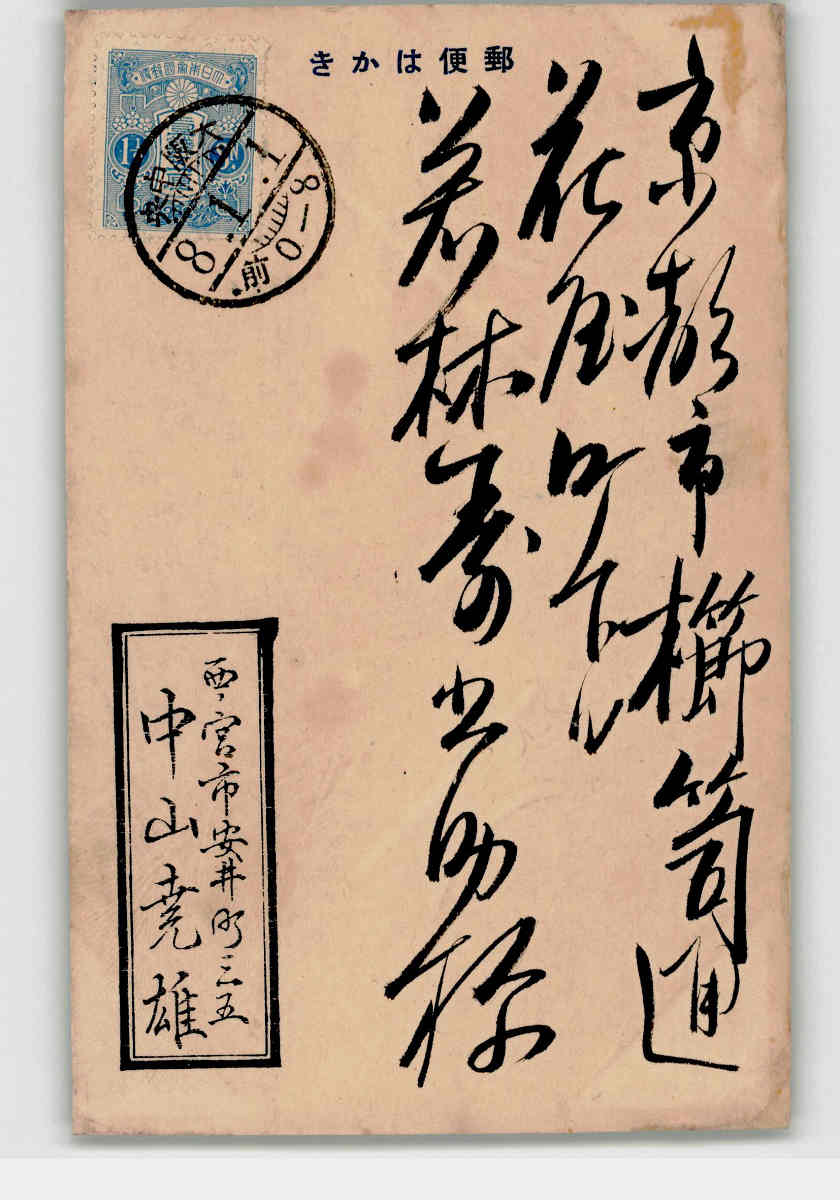 郵便はかき
京都市櫛笥通
花屋町下ル
若林壽之助様
西宮市安井町三五
中山堯雄
大日本帝國郵便
1½
8.1.1
前0-8